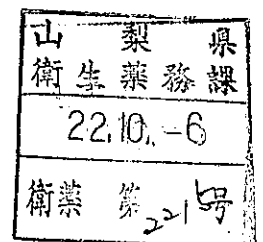 山梨県
衛生薬務課
22.10.-6
衛薬 第221号